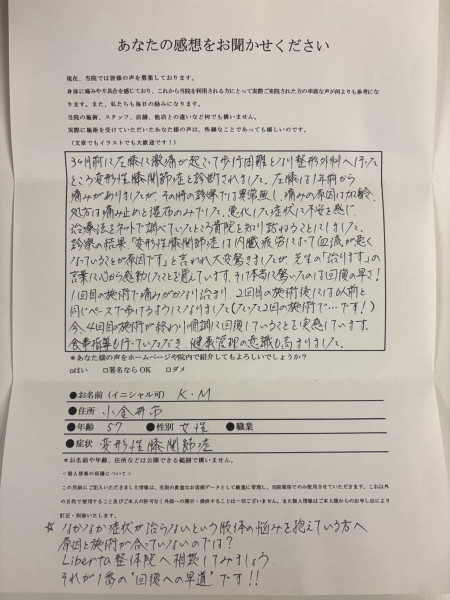 あなたの感想をお聞かせください
現在、当院では皆様の声を募集しております。
身体に痛みや不具合を感じており、これから当院を利用される方にとって実際ご来院された方の率直な声が何よりも参考にな
ります。また、私たちも毎日の励みになります。
当院の施術、スタッフ、店舗、他店との違いなど何でも構いません。
実際に施術を受けていただいたあなた様の声は、些細なことであっても嬉しいのです。
(文章でもイラストでも大歓迎です!)
3ヶ月前に左膝に激痛が起こって歩行困難となり整形外科へ行った
ところ変形性膝関節症と診断されました。左膝は1年前から
痛みがありましたが、その時の診察では異常無し、痛みの原因は加齢、
処方は痛み止めと湿布のみでした。悪化した症状に不安を感じ
治療法をネットで調べていたところ貴院を知り訪ねることにしました。
診察の結果「変形性膝関節症は内臓疲労によって血流が悪く
なっていることが原因です」と言われ大変驚きましたが、先生の「治ります」の
言葉に心から感動したことを覚えています。そして本当に驚いたのは回復の早さ!
1回目の施術で痛みがかなり治まり、2回目の施術後には以前と
同じペースで歩けるようになりました(たった2回の施術で…です!)
今、4回目の施術が終わり順調に回復していることを実感しています。
食事指導も行っていただき、健康管理の意識も高まりました。
＊あなた様の声をホームページや院内で紹介してもよろしいでしょうか?
□はい □署名ならOK □ダメ
●お名前(イニシャル可) K・M
●住所 小金井市
●年齢 57 ●性別 女性 ●職業
●症状 変形性膝関節症
＊お名前や年齢、住所などは公開できる範囲で構いません。
<個人情報の保護について>
この用紙にご記入いただきました情報は、当院の貴重なお客様データとして厳重に管理し、当院環境でのみ使用させていただきます。これ以外
の目的で使用すること及びご本人の許可なく外部への開示・提供することは一切ございません。また個人情報はご本人様からのお申し出により
訂正・削除いたします。
☆ なかなか症状が治らないという肢体の悩みを抱えている方へ
原因と施術が合っていないのでは?
Liberta整体院へ相談してみましょう
それが1番の"回復への早道"です!!